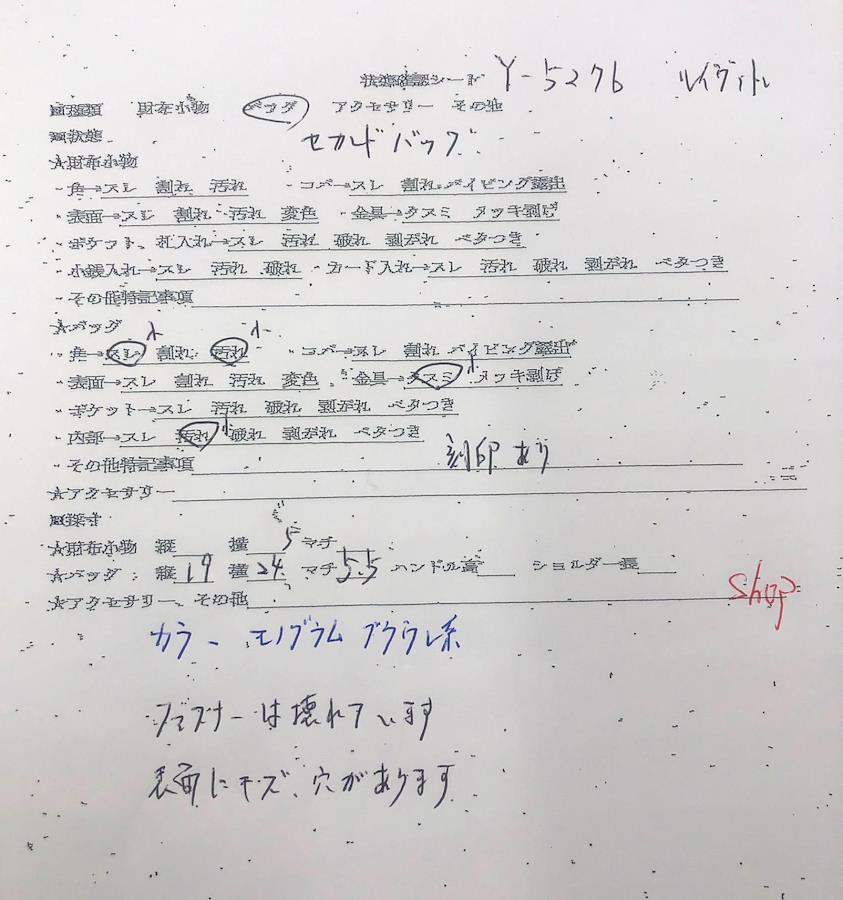 状態確認シート Y-5276 ルイヴィトン
■種類 財布小物 バッグ アクセサリー その他
■状態 セカンドバッグ
★財布小物
・角→スレ 割れ 汚れ ・コバ→スレ 割れ パイピング露出
・表面→スレ 割れ 汚れ 変色 ・金具→クスミ メッキ剥げ
・ポケット、札入れ→スレ 汚れ 破れ 剥がれ ベタつき
・小銭入れ→スレ 汚れ 破れ ・カード入れ→スレ 汚れ 破れ 剥がれ ベタつき
・その他特記事項
★バッグ 小 小
・角→スレ 割れ 汚れ ・コバ→スレ 割れ パイピング露出
・表面→スレ 割れ 汚れ 変色 ・金具→クスミ 小 メッキ剥げ
・ポケット→スレ 汚れ 破れ 剥がれ ベタつき
・内部→スレ 汚れ 小 破れ 剥がれ ベタつき
・その他特記事項 刻印あり
★アクセサリー
■採寸
★財布小物 縦 横 5 マチ
★バッグ : 縦 19 横 24 マチ 5.5 ハンドル高 ショルダー長
★アクセサリー、その他 shop
カラー モノグラム ブラウン系
ファスナーは壊れています
表面にキズ、穴があります